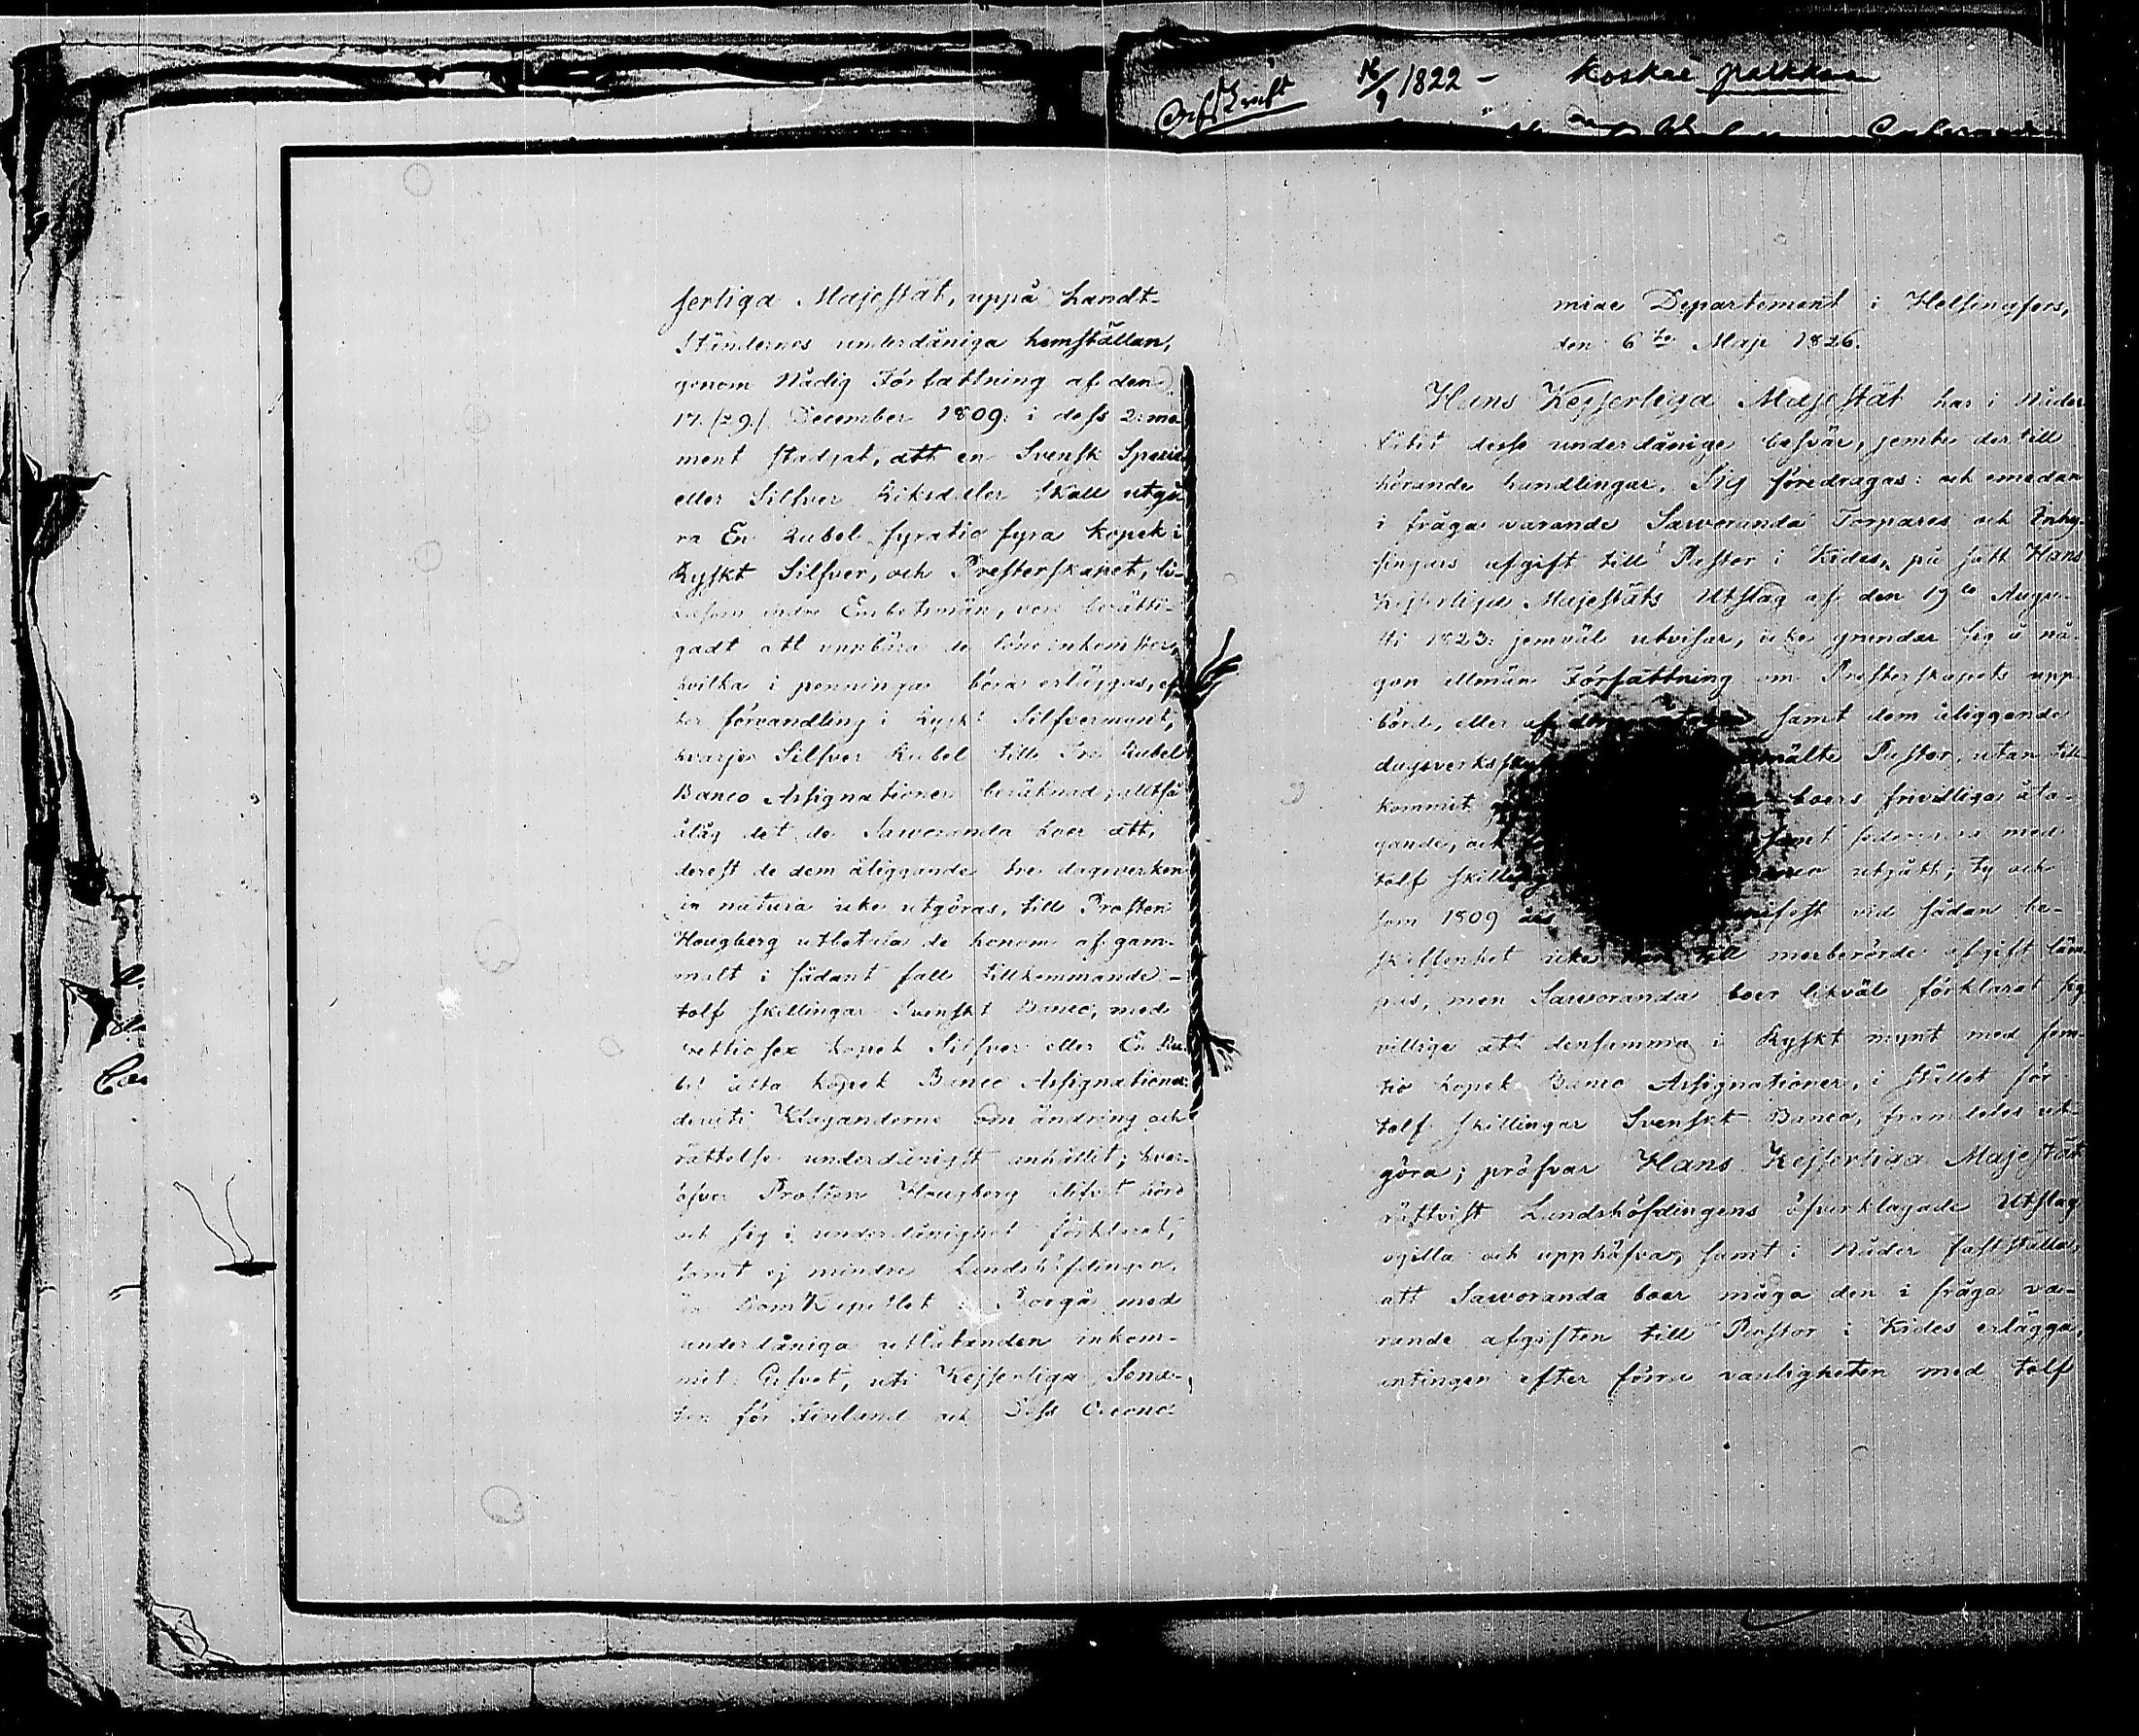 Afskrift 16/9 1822 – koskee palkkaa
serliga Majestät, uppå Landt-
Ständernes underdåniga hemställan,
genom Nådig Författning af den
17. (29.) December 1809. i dess 2: mo-
ment stadgat, att en Svensk Specie
eller Silfver Riksdaler skall utgö-
ra En Rubel fyratio fyra kopek i
Ryskt Silfver, och Presterskapet, li-
kasom andre Embetsmän, vore berätti-
gadt att uppbära de löneinkomster,
hvilka i penningar böra erläggas, ef-
ter förvandling i Ryskt Silfvermynt,
hvarje Silfver Rubel till Tre Rubel
Banco Assignationer beräknad; alltså
ålåg det de Saworanda boer att,
derest de dem åliggande tre dagsverken
in natura icke utgöras, till Prosten
Hougberg utbetala de honom af gam-
malt i sådant fall tillkommande
tolf skillingar Svenskt Banco, med
trettiosex kopek Silfver eller En Ru-
bel åtta kopek Banco Assignationer:
deruti Klaganderne om ändring och
rättelse underdånigst anhållit; hvar-
öfver Prosten Hougberg blifvit hörd
och sig i underdånighet förklarat,
samt ej mindre Landshöfdingen,
än DomKapitlet i Borgå med
underdåniga utlåtanden inkom-
mit. Gifvet, uti Kejserliga Sena-
ten för Finland och Dess Oecono-
miae Departement i Helsingfors,
den 6te Maji 1826.
Hans Kejserliga Majestät har i Nåder
låtit desse underdåniga besvär, jemte der till
hörande handlingar, Sig föredragas: och emedan
i fråga varande Saworanda Torpares och Inhy-
singars afgift till Pastor i Kides, på sätt Hans
Kejserliga Majestäts Utslag af den 19de Augu-
sti 1823. jemväl utvisar, icke grundar sig å nå-
gon allmän Författning om Presterskapets upp-
börd, eller af samt dem åliggande
dagsverksskyl mälte Pastor, utan till
kommit boers frivilliga åta-
gande, och samt sedermera med
tolf skilling anco utgått; ty och
som 1809 års nifest vid sådan be-
skaffenhet icke kan till merberörde afgift läm-
pas, men Saworanda boer likväl förklarat sig
villige att densamma i Ryskt mynt med fem-
tio kopek Banco Assignationer, i stället för
tolf skillingar Svenskt Banco, framledes ut-
göra; pröfvar Hans Kejserliga Majestät
rättvist Landshöfdingens öfverklagade Utslag
ogilla och upphäfva, samt i Nåder fastställa,
att Saworanda boer måga den i fråga va-
rande afgiften till Pastor i Kides erlägga,
antingen efter förra vanligheten med tolf